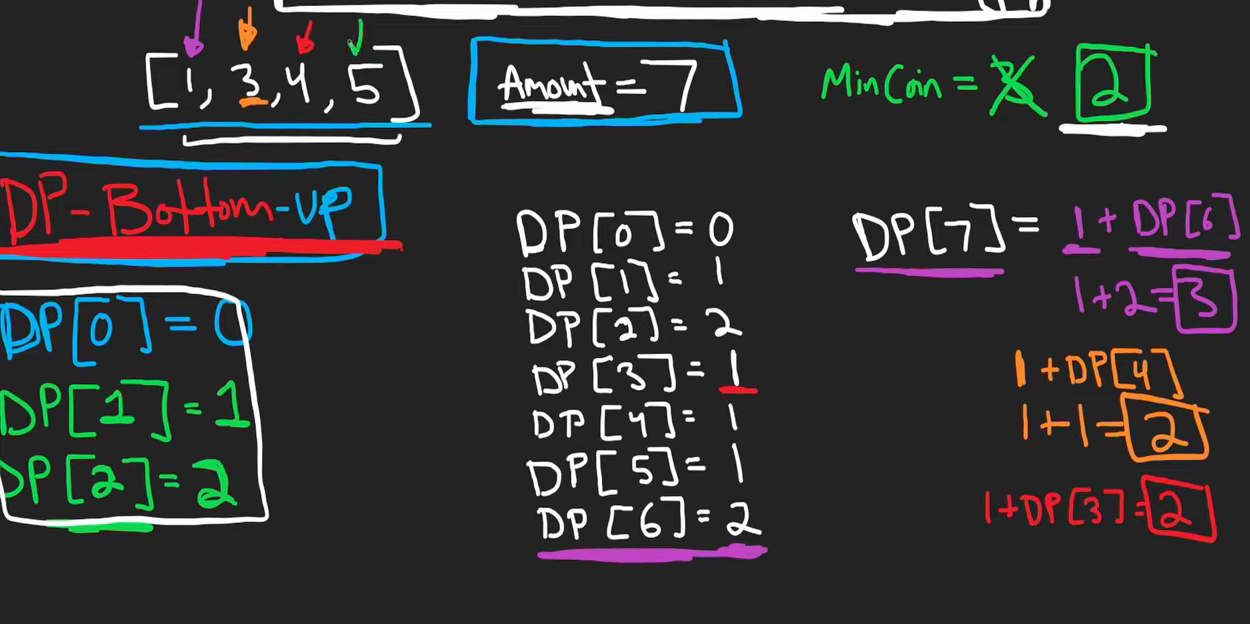 [1, 3, 4, 5]
Amount = 7
MinCoin = 3 2
DP-Bottom-UP
DP[0] = 0
DP[1] = 1
DP[2] = 2
DP[0] = 0
DP[1] = 1
DP[2] = 2
DP[3] = 1
DP[4] = 1
DP[5] = 1
DP[6] = 2
DP[7] = 1 + DP[6]
1+2=3
1+DP[4]
1+1=2
1+DP[3]=2